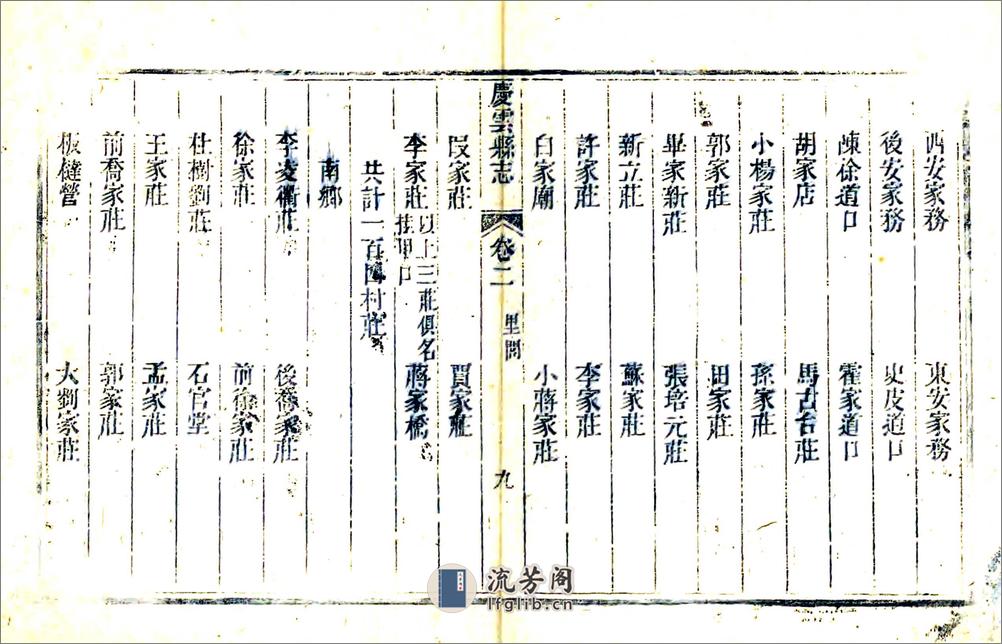 西安家務　東安家務
後安家務　史皮道口
陳徐道口　霍家道口
胡家店　馬古台莊
小楊家莊　孫家莊
郭家莊　田家莊
畢家新莊　張培元莊
新立莊　蘇家莊
許家莊　李家莊
白家廟　小蔣家莊
慶雲縣志　卷二　里閭　九
段家莊　賈家莊
李家莊　以上三莊俱名挂甲口　蔣家橋
共計一百四村莊
南鄉
李凌衢莊　後喬家莊
徐家莊　前徐家莊
杜樹劉莊　石官堂
王家莊　孟家莊
前喬家莊　郭家莊
板槤營　大劉家莊
流芳阁
lfglib.cn